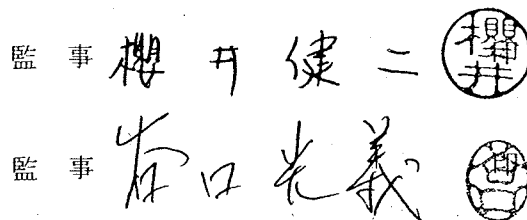 監事 櫻井健二 櫻井
監事 谷口光義